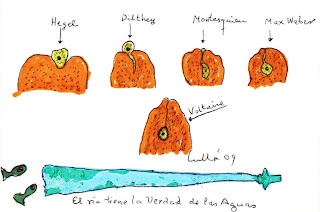 Hegel
Dilthey
Montesquieu
Max Weber
Voltaire
Lullá 09
El río tiene la Verdad de las Aguas